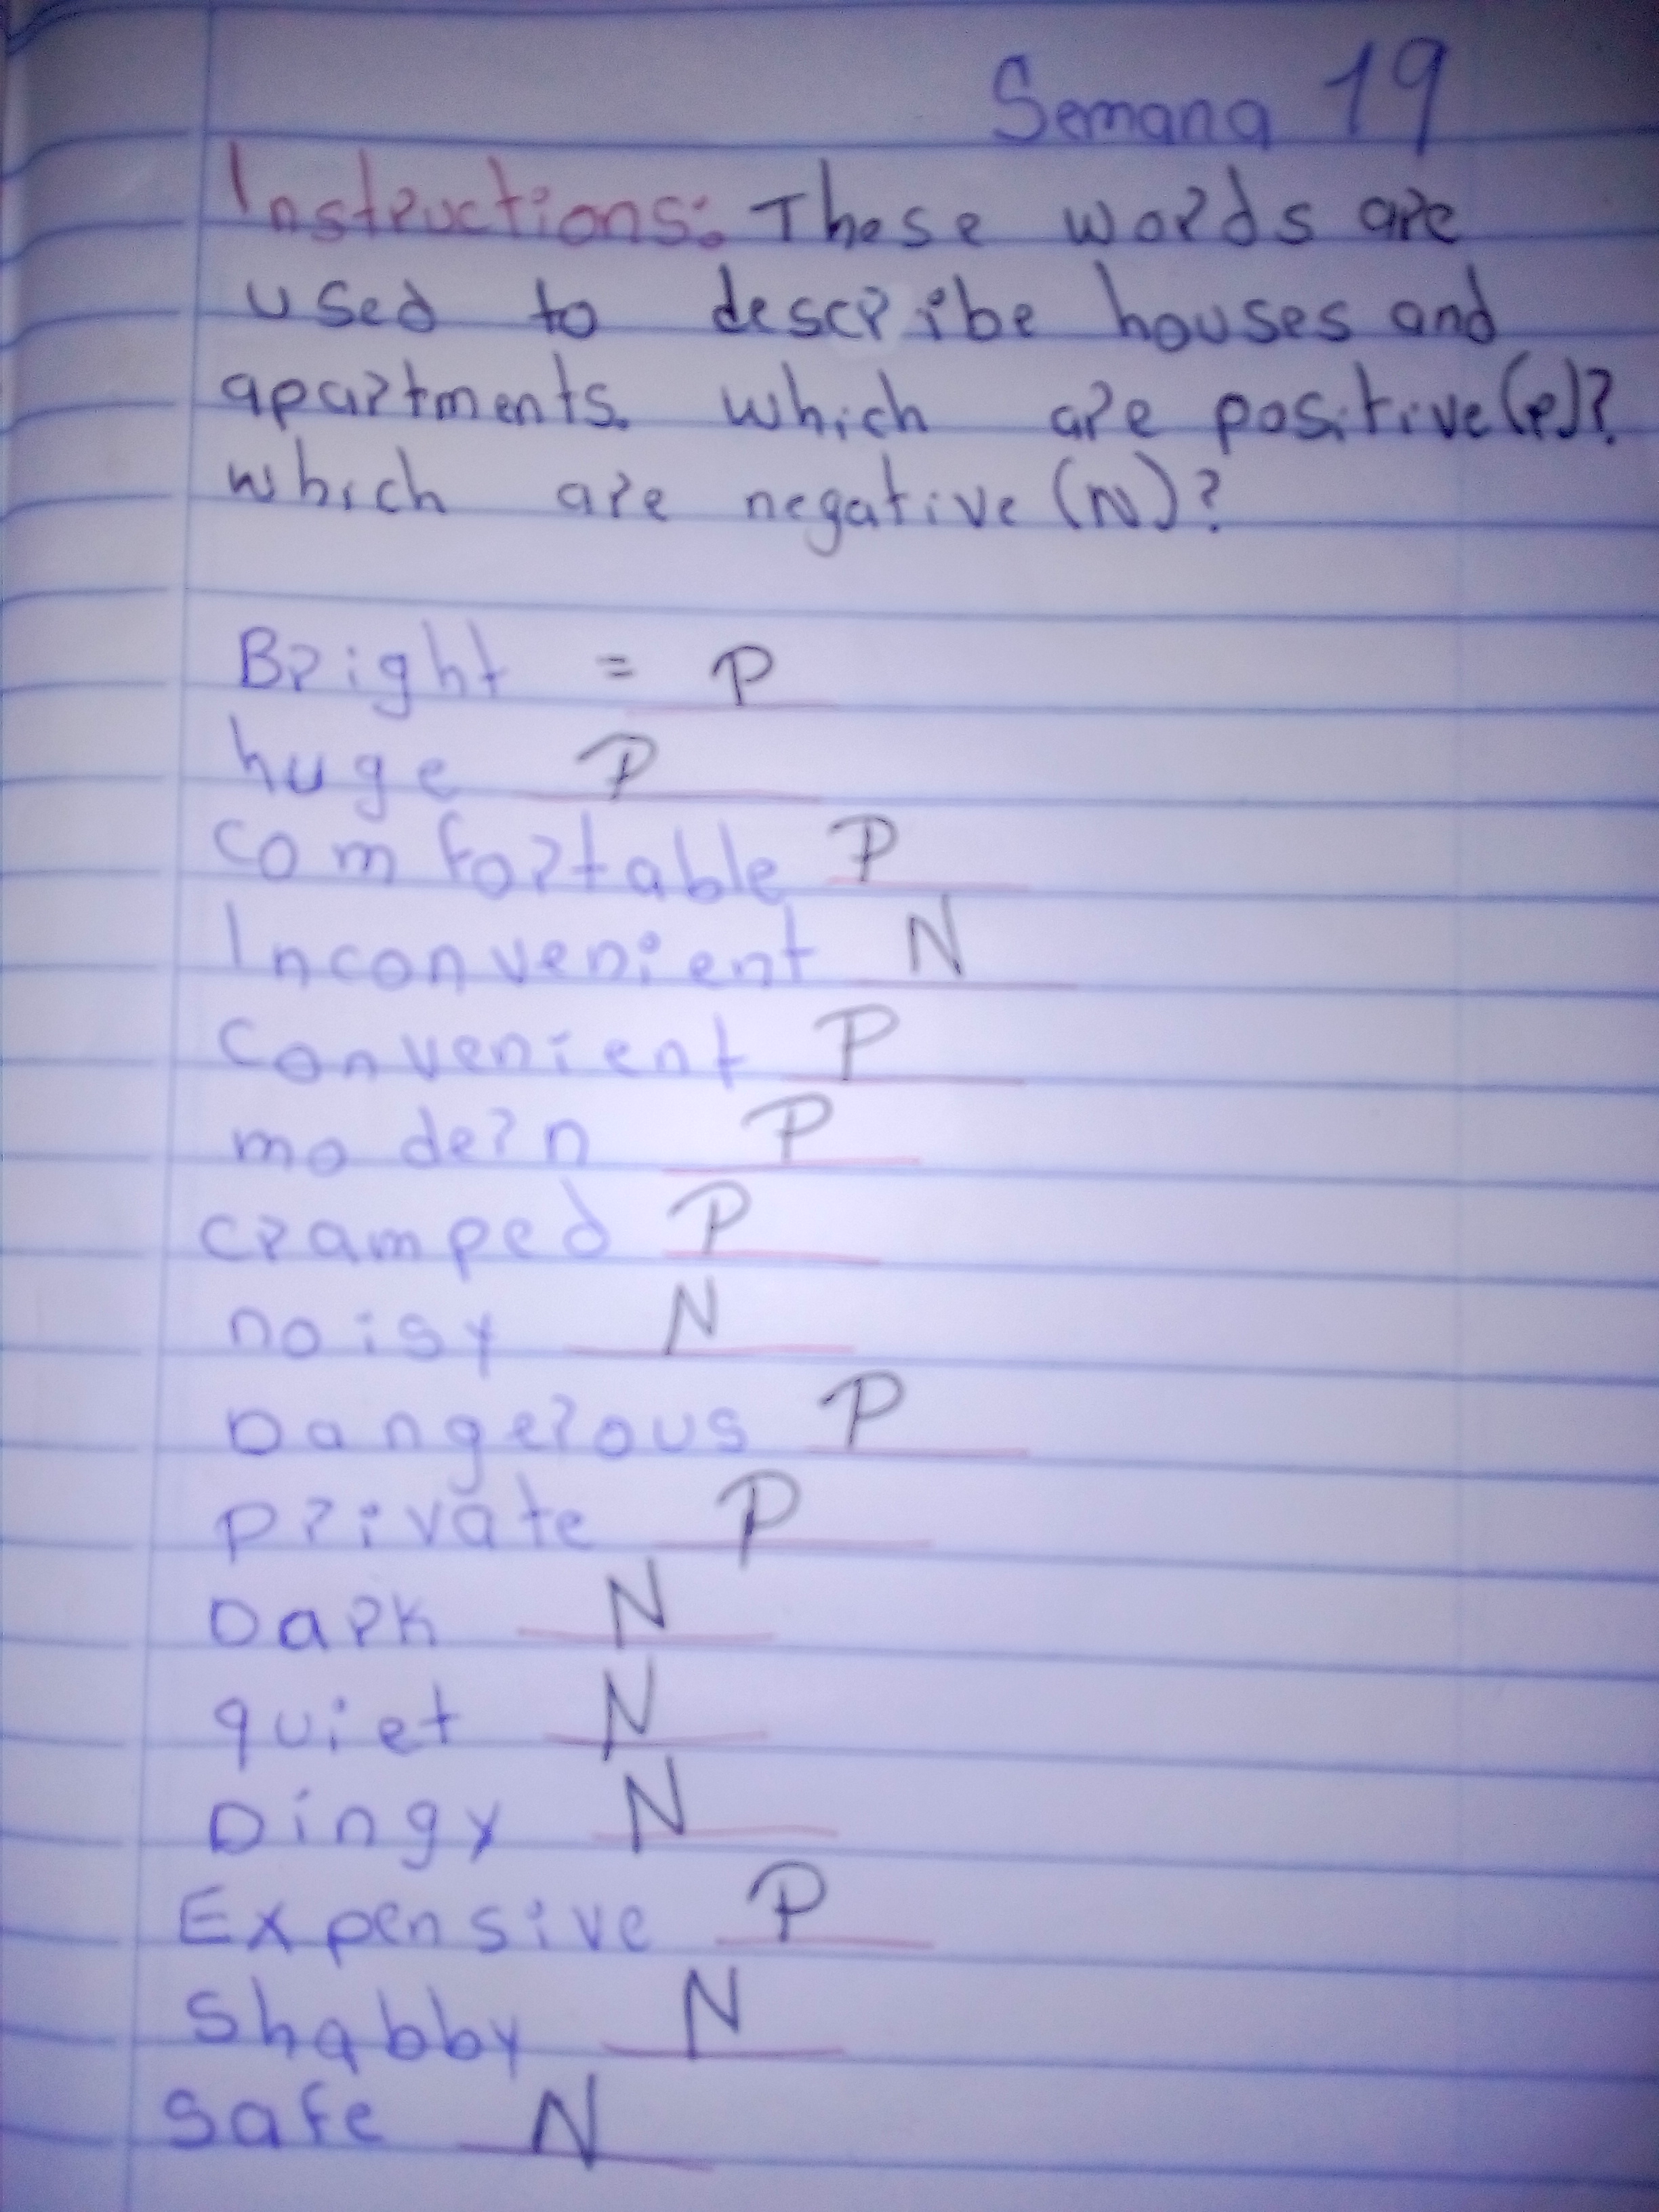 Semana 19
Instructions: These words are
used to describe houses and
apartments. which are positive(P)?
which are negative (N)?
Bright = P
huge P
comfortable P
Inconvenient N
convenient P
modern P
cramped P
noisy N
Dangerous P
private P
Dark N
quiet N
Dingy N
Expensive P
Shabby N
Safe N